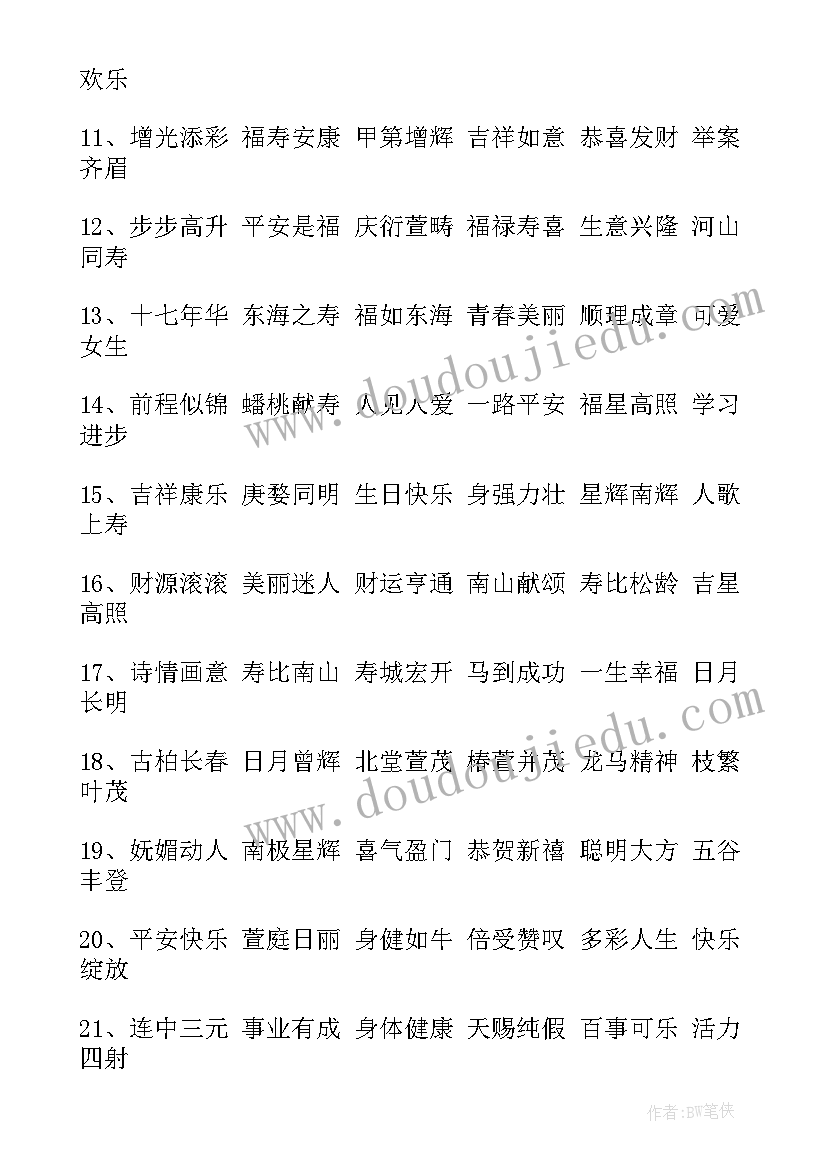 欢乐
11、增光添彩 福寿安康 甲第增辉 吉祥如意 恭喜发财 举案
齐眉
12、步步高升 平安是福 庆衍萱畴 福禄寿喜 生意兴隆 河山
同寿
13、十七年华 东海之寿 福如东海 青春美丽 顺理成章 可爱
女生
14、前程似锦 蟠桃献寿 人见人爱 一路平安 福星高照 学习
进步
15、吉祥康乐 庚婺同明 生日快乐 身强力壮 星辉南辉 人歌
上寿
16、财源滚滚 美丽迷人 财运亨通 南山献颂 寿比松龄 吉星
高照
17、诗情画意 寿比南山 寿城宏开 马到成功 一生幸福 日月
长明
18、古柏长春 日月曾辉 北堂萱茂 椿萱并茂 龙马精神 枝繁
叶茂
19、妩媚动人 南极星辉 喜气盈门 恭贺新禧 聪明大方 五谷
丰登
20、平安快乐 萱庭日丽 身健如牛 倍受赞叹 多彩人生 快乐
绽放
21、连中三元 事业有成 身体健康 天赐纯假 百事可乐 活力
四射
www.doudoujiedu.com
www.doudoujiedu.com
作者:BW笔侠